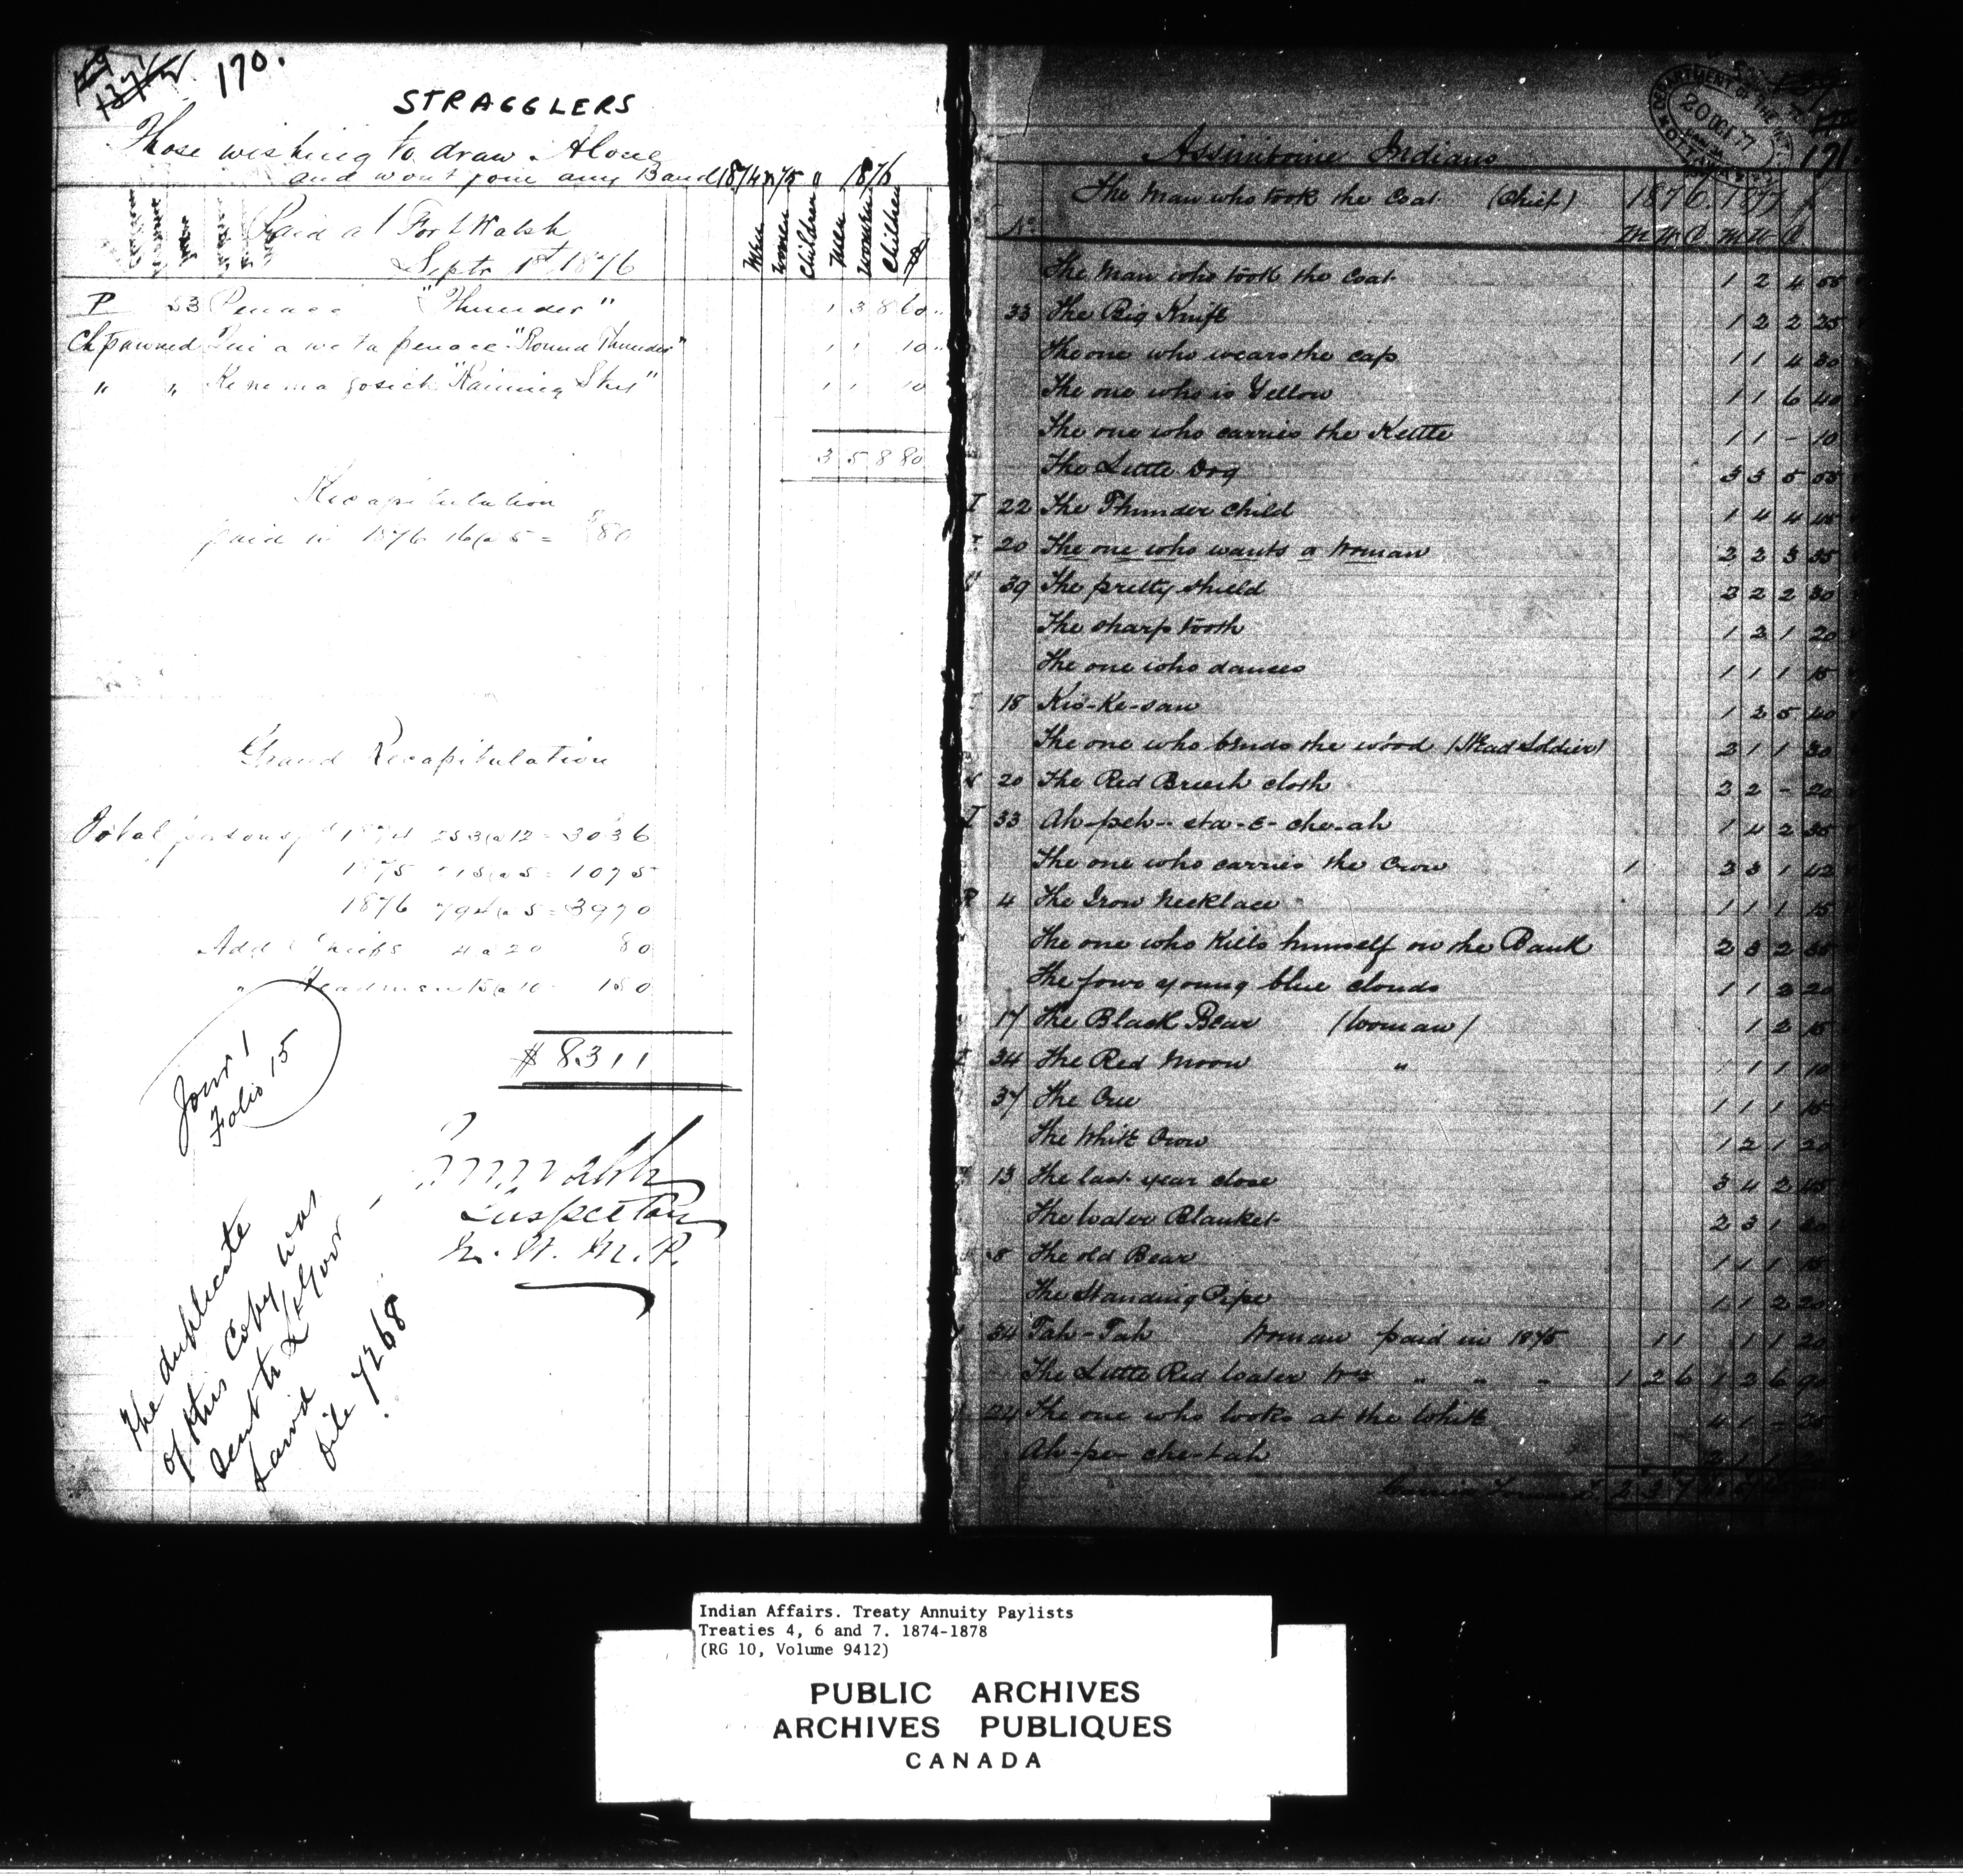 170.
STRAGGLERS
Those wishing to draw Alone
and wont join any Band 1874 & 75 " 1876
Paid at Fort Walsh
Septr 1st 1876
Men Women Children Men Women Children
P 53 Penace "Thunder" 1 3 8 60 "
Ch pawned penace "Round Thunder" 1 1 10 "
" " Ke ne ma gosick "Raining Sky" 1 1 10
3 5 8 80
Recapitulation
paid in 1876 16 @ 5 = $80
Grand Recapitulation
Total persons pd 1874 253 @ 12 = 3036
1875 215 @ 5 = 1075
1876 794 @ 5 = 3970
Add Chiefs 4 @ 20 80
" Headmen 15 @ 10 150
$8311
Jour 1
Folio 15
Walsh
Inspector
N. W. M. P.
The duplicate
of this Copy was
sent to Lt Govr
Laird
file 7268
DEPARTMENT OF THE
20 OCT 77
171.
Assiniboine Indians
The Man who took the Coat (Chief) 1876. 1877
No. M W C M W C
The Man who took the Coat 1 2 4 55
33 The Big Knife 1 2 2 25
The one who wears the cap 1 1 4 30
The one who is Yellow 1 1 6 40
The one who carries the Kettle 1 1 - 10
The Little Dog 3 3 5 55
I 22 The Thunder Child 1 4 4 45
20 The one who wants a Woman 2 2 3 35
39 The pretty shield 2 2 2 30
The sharp tooth 1 2 1 20
The one who dances 1 1 1 15
18 Kis-Ke-saw 1 2 5 40
The one who binds the wood (Head Soldier) 2 1 1 30
20 The Red Breech cloth 2 2 - 20
I 33 Ah-peh-eta-e-che-ah 1 4 2 35
The one who carries the Crow 1 2 3 1 42
R 4 The Iron Necklace 1 1 1 15
The one who Kills himself on the Bank 2 3 2 35
The four young blue clouds 1 1 2 20
17 The Black Bear (Woman) 1 2 15
34 The Red Moon " 1 1 10
37 The Cree 1 1 1 15
The White Crow 1 2 1 20
13 The last year close 3 4 2 45
The Water Blanket 2 3 1 30
8 The old Bear 1 1 1 15
The Standing Pipe 1 1 2 20
34 Tah-Tah Woman paid in 1875 1 1 1 1 20
The Little Red Water Wn " " " 1 2 6 1 2 6 90
24 The one who looks at the White 4 1 - 25
Ah-pe-che-tah 2 1 1 20
Carried Forward 2 3 7
Indian Affairs. Treaty Annuity Paylists
Treaties 4, 6 and 7. 1874-1878
(RG 10, Volume 9412)
PUBLIC ARCHIVES
ARCHIVES PUBLIQUES
CANADA